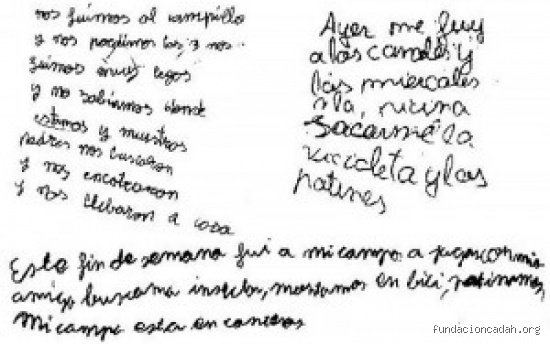 nos fuimos al campillo
y nos perdimos los 7 nos
fuimos muy legos
y no sabiamos donde
estamos y nuestros
padres nos buscaron
y nos encotraron
y nos llebaron a casa
Ayer me fuy
a las canales y
las miercales
a la, 
sacarme la
vicicleta y los
patines
Este fin de semana fui a mi campo a jugar con mis
amigo, insectos, montamos en bici, patinamos,
Mi campo esta en
fundacioncadah.org